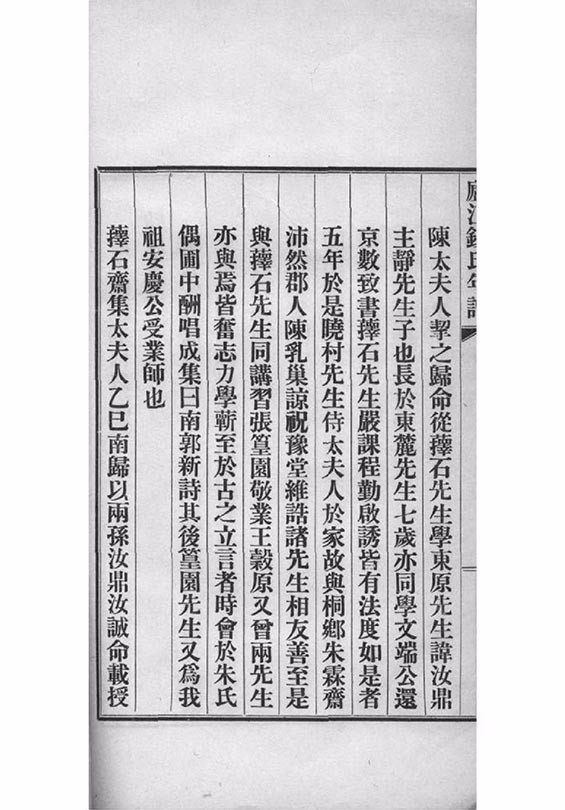 廬江錢氏年譜
陳太夫人挈之歸命從蘀石先生學東原先生諱汝鼎
主靜先生子也長於東麓先生七歲亦同學文端公還
京數致書蘀石先生嚴課程勤啟誘皆有法度如是者
五年於是曉村先生侍太夫人於家故與桐鄉朱霖齋
沛然郡人陳乳巢諒祝豫堂維誥諸先生相友善至是
與蘀石先生同講習張篁園敬業王穀原又曾兩先生
亦與焉皆奮志力學蘄至於古之立言者時會於朱氏
偶圃中酬唱成集曰南郭新詩其後篁園先生又爲我
祖安慶公受業師也
蘀石齋集太夫人乙巳南歸以兩孫汝鼎汝誠命載授